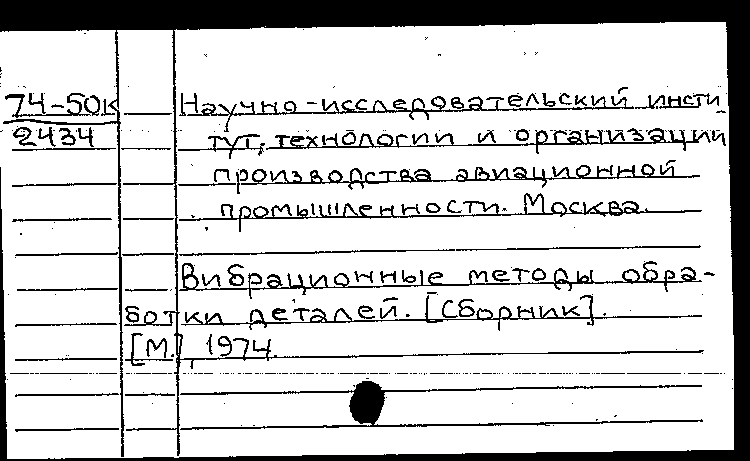 74-50к Научно-исследовательский инсти-
2434 тут, технологии и организации
производства авиационной
промышленности. Москва.
Вибрационные методы обра-
ботки деталей. [Сборник].
[М.], 1974.